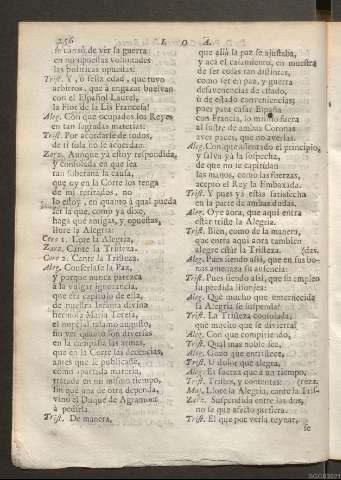 256 LOA.
se cansò de ver la guerra
en no opuestas voluntades
las politicas opuestas:
Trist. Y, ò feliz edad, que tuvo
arbitros, que à engazar buelvan
con el Español Laurel,
la Flor de la Lis Francesa!
Aleg. Con que ocupados los Reyes
en tan sagradas materias:
Trist. Por acordarse de todos,
de ti sola no se acordan.
Zarz. Aunque ya estoy respondida,
y consolada en que sea
tan soberana la causa,
que oy en la Corte los tenga
de mi retirados, no
lo estoy, en quanto à qual pueda
ser la que, como ya dixe,
haga que amigas, y opuestas,
llore la Alegria:
Coro 1. Llore la Alegria,
Zarz. Cante la Tristeza.
Coro 2. Cante la Tristeza.
Aleg. Conferiase la Paz,
y porque nunca parezca
à la vulgar ignorancia,
que era capitulo de ella,
de nuestra Infanta divina
hermosa Maria Teresa,
el nupcial talamo augusto,
sin ver quanto son diversas
en la campaña las armas,
que en la Corte las decencias,
antes que se publicasse,
como apartada materia,
tratada en un mismo tiempo,
sin que una de otra dependa,
vino el Duque de Agramont
à pedirla.
Trist. De manera,
que allà la paz se ajustaba,
y acà el casamiento, en muestra
de ser cosas tan distintas,
como ser en paz, y guerra
desavenencias de estado,
ù de estado conveniencias;
pues para casar España
con Francia, lo mismo fuera
al lustre de ambas Coronas
aver paces, que no averlas.
Aleg. Con que assentado el principio,
y salva ya la sospecha,
de que no se capitulan
las manos, como las fuerzas,
aceptò el Rey la Embaxada.
Trist. Y pues ya està satisfecha
en la parte de ambas dudas.
Aleg. Oye aora, que aqui entra
estar triste la Alegria.
Trist. Bien, como de la manera,
que entra aqui aora tambien
alegre estàr la Tristeza.
Aleg. Pues siendo assi, que en sus bo-
nos amenaza su ausencia:
Trist. Pues siendo assi, que su empleo
su perdida lisonjea:
Aleg. Què mucho que enternecida
la Alegria se suspenda?
Trist. La Tristeza consolada,
què mucho que se divierta?
Aleg. Con que compitiendo,
Trist. Qual mas noble sea,
Aleg. Gozo que entristece,
Trist. U dolor que alegra,
Aleg. Es fuerza que à un tiempo,
Trist. Tristes, y contentas:
Mus. Llore la Alegria, cante la Tris-
Zarz. Suspendida entre las dos,
no sè que afecto prefiera.
Trist. El que por verla reynar,
se